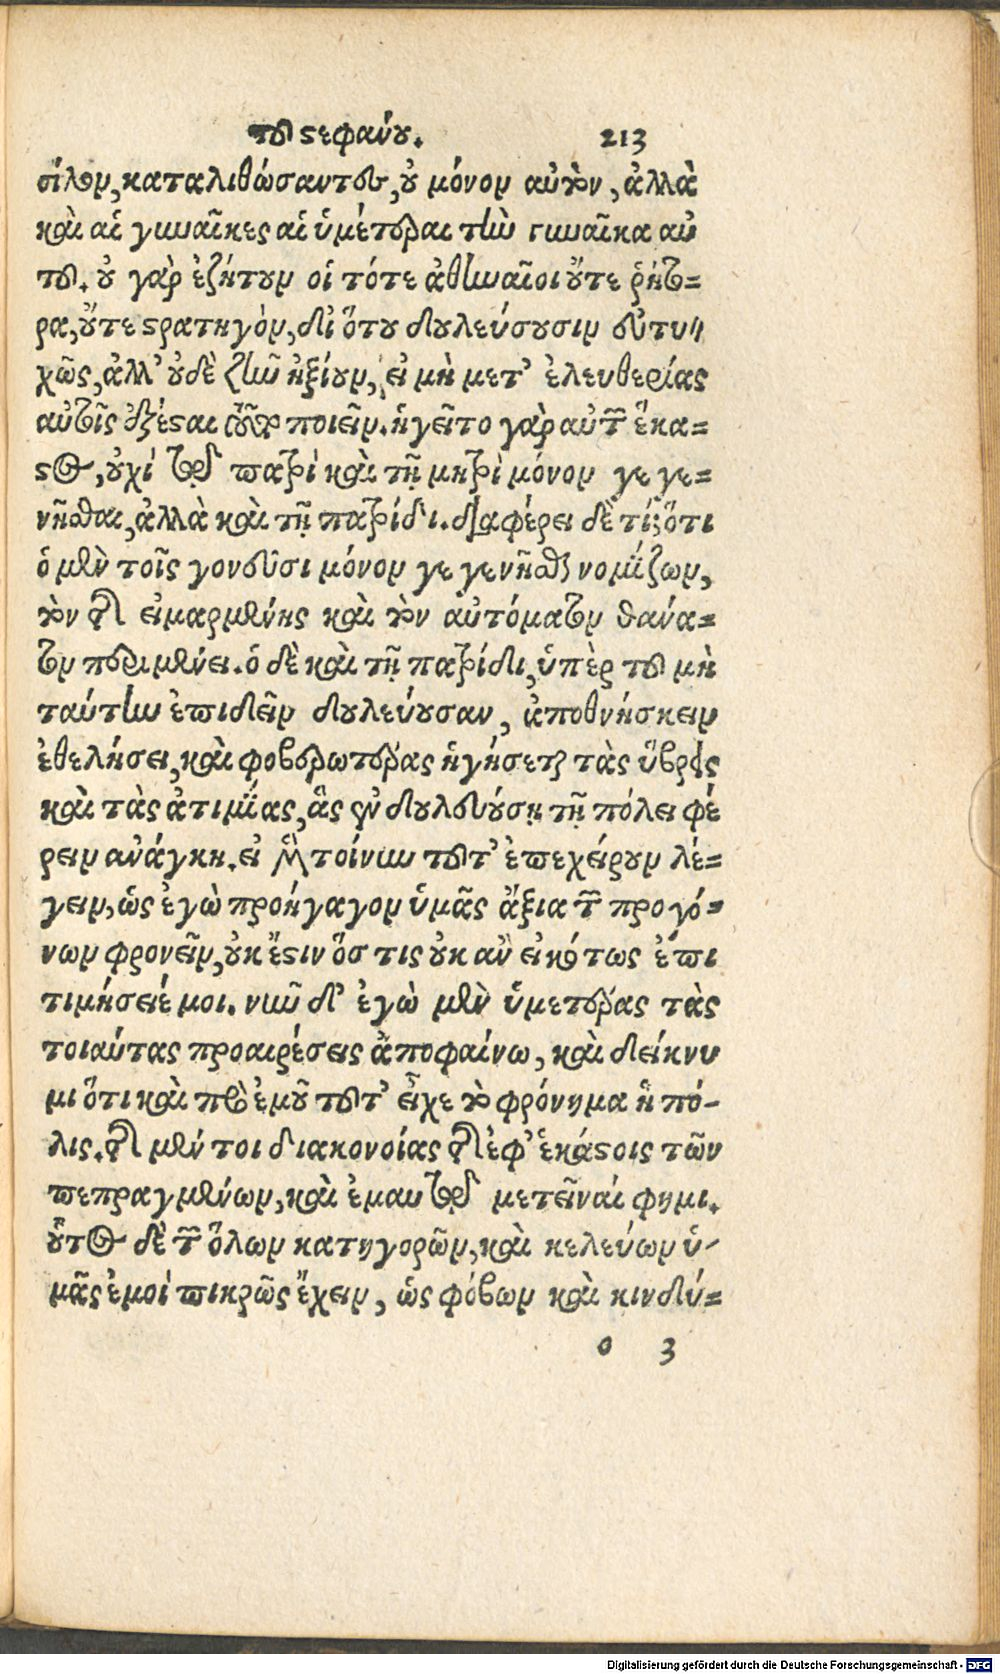 τοῦ στεφάνου. 213
σίλον, καταλιθώσαντες, οὐ μόνον αὐτὸν, ἀλλὰ
καὶ αἱ γυναῖκες αἱ ὑμέτεραι τὴν γυναῖκα αὐ
τοῦ. οὐ γὰρ ἐζήτουν οἱ τότε ἀθηναῖοι οὔτε ῥήτο-
ρα, οὔτε στρατηγὸν, δι' ὅτου δουλεύσουσιν εὐτυ-
χῶς, ἀλλ' οὐδὲ ζῆν ἠξίουν, εἰ μὴ μετ' ἐλευθερίας
αὐτοῖς ἐξέσται τοῦτο ποιεῖν. ἡγεῖτο γὰρ αὐτῶν ἕκα-
στος, οὐχὶ τῷ πατρὶ καὶ τῇ μητρὶ μόνον γεγε-
νῆσθαι, ἀλλὰ καὶ τῇ πατρίδι. διαφέρει δὲ τί; ὅτι
ὁ μὲν τοῖς γονεῦσι μόνον γεγενῆσθαι νομίζων,
τὸν τῆς εἱμαρμένης καὶ τὸν αὐτόματον θάνα-
τον περιμένει. ὁ δὲ καὶ τῇ πατρίδι, ὑπὲρ τοῦ μὴ
ταύτην ἐπιδεῖν δουλεύουσαν, ἀποθνήσκειν
ἐθελήσει, καὶ φοβερωτέρας ἡγήσεται τὰς ὕβρεις
καὶ τὰς ἀτιμίας, ἃς ἐν δουλευούσῃ τῇ πόλει φέ
ρειν ἀνάγκη. εἰ μὲν τοίνυν τοῦτ' ἐπεχείρουν λέ-
γειν, ὡς ἐγὼ προήγαγον ὑμᾶς ἄξια τῶν προγό-
νων φρονεῖν, οὐκ ἔστιν ὅστις οὐκ ἂν εἰκότως ἐπι
τιμήσειέ μοι. νῦν δ' ἐγὼ μὲν ὑμετέρας τὰς
τοιαύτας προαιρέσεις ἀποφαίνω, καὶ δείκνυ
μι ὅτι καὶ πρὸ ἐμοῦ τοῦτ' εἶχε τὸ φρόνημα ἡ πό-
λις. τῆς μέν τοι διακονοίας τῆς ἐφ' ἑκάστοις τῶν
πεπραγμένων, καὶ ἐμαυτῷ μετεῖναί φημι.
οὗτος δὲ τῶν ὅλων κατηγορῶν, καὶ κελεύων ὑ-
μᾶς ἐμοὶ πικρῶς ἔχειν, ὡς φόβων καὶ κινδύ-
o 3
Digitalisierung gefördert durch die Deutsche Forschungsgemeinschaft - DFG